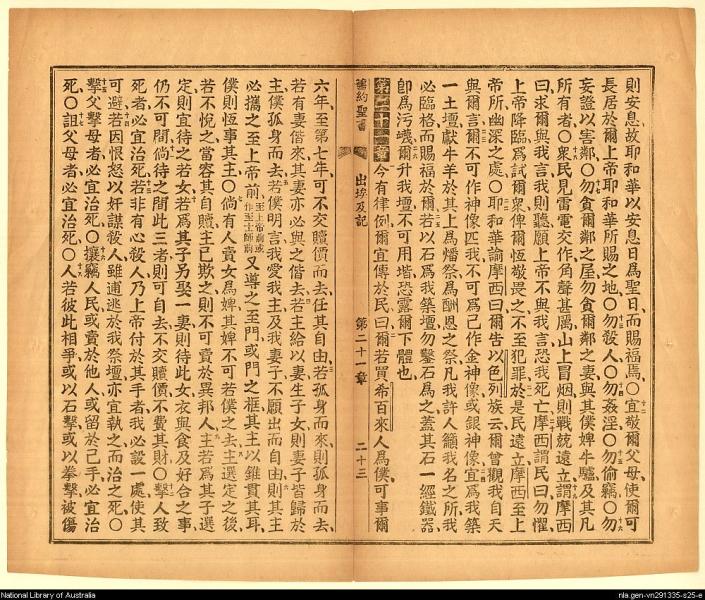 則安息故耶和華以安息日爲聖日而賜福焉〇宜敬爾父母使爾可
長居於爾上帝耶和華所賜之地〇勿殺人〇勿姦淫〇勿偷竊〇勿
妄證以害鄰〇勿貪爾鄰之屋勿貪爾鄰之妻與其僕婢牛驢及其凡
所有者〇衆民見雷電交作角聲甚厲山上冒烟則戰兢遠立謂摩西
曰求爾與我言我則聽願上帝不與我言恐我死亡摩西謂民曰勿懼
上帝降臨爲試爾衆俾爾恆敬畏之不至犯罪於是民遠立摩西至上
帝所幽深之處〇耶和華諭摩西曰爾告以色列族云爾曾觀我自天
與爾言爾不可作神像匹我不可爲己作金神像或銀神像宜爲我築
一土壇獻牛羊於其上爲燔祭爲酬恩之祭凡我許人籲我名之所我
必臨格而賜福於爾若以石爲我築壇勿鑿石爲之蓋其石一經鐵器
卽爲污衊爾升我壇不可用堦恐露爾下體也
第二十一章今有律例爾宜傳於民曰爾若買希百來人爲僕可事爾
舊約聖書 出埃及記 第二十一章 二十三
六年至第七年可不交贖價而去任其自由若孤身而來則孤身而去
若有妻偕來其妻亦必與之偕去若主給以妻生子女則妻子皆歸於
主僕孤身而去若僕明言我愛我主及我妻子不願出而自由則其主
必攜之至上帝前至上帝前或作至士師前又導之至門或門之框其主以錐貫其耳
僕則恆事其主〇倘有人賣女爲婢其婢不可若僕之去主選定之後
若不悅之當容其自贖主已欺之則不可賣於異邦人主若爲其子選
定則宜待之若女若爲其子另娶一妻則待此女衣與食及好合之事
仍不可間倘待之間此三者則可自去不交贖價不費其財〇擊人致
死者必宜治死若非有心殺人乃上帝付於其手者我必設一處使其
可避若因恨怨以奸謀殺人雖逋逃於我祭壇亦宜執之而治之死〇
擊父擊母者必宜治死〇攘竊人民或賣於他人或留於己手必宜治
死〇詛父母者必宜治死〇人若彼此相爭或以石擊或以拳擊被傷
National Library of Australia
nla.gen-vn291335-s25-e